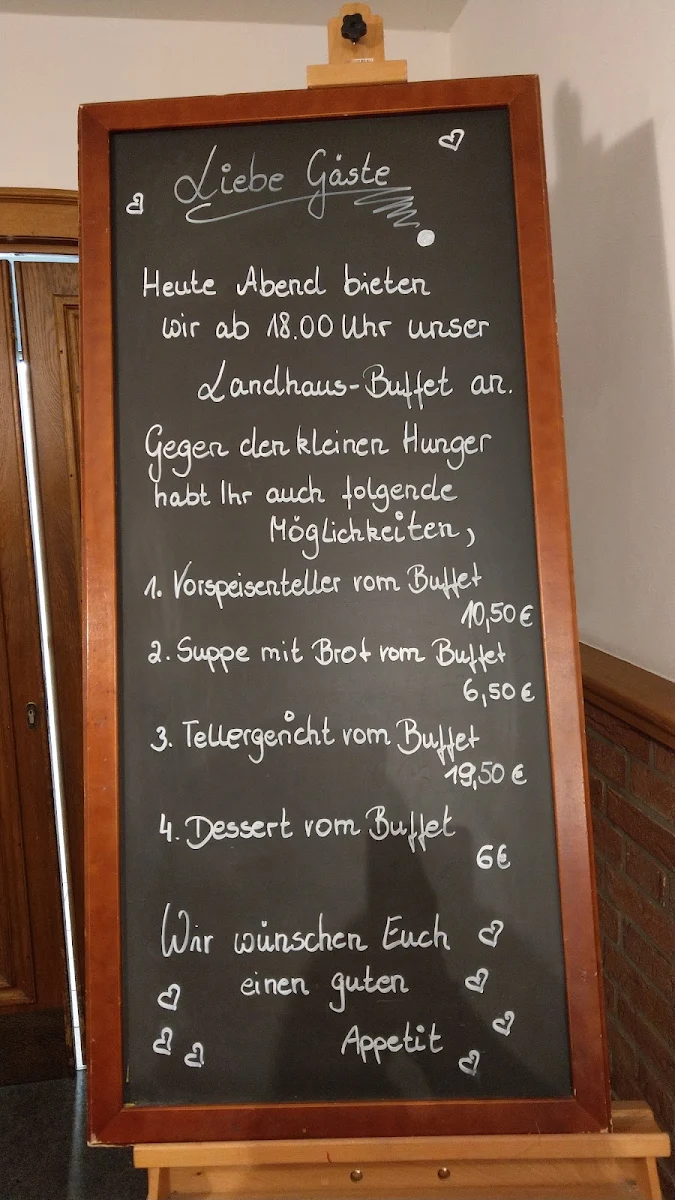 Liebe Gäste
Heute Abend bieten
wir ab 18.00 Uhr unser
Landhaus-Buffet an.
Gegen den kleinen Hunger
habt Ihr auch folgende
Möglichkeiten,
1. Vorspeisenteller vom Buffet
10,50 €
2. Suppe mit Brot vom Buffet
6,50 €
3. Tellergericht vom Buffet
19,50 €
4. Dessert vom Buffet
6 €
Wir wünschen Euch
einen guten
Appetit